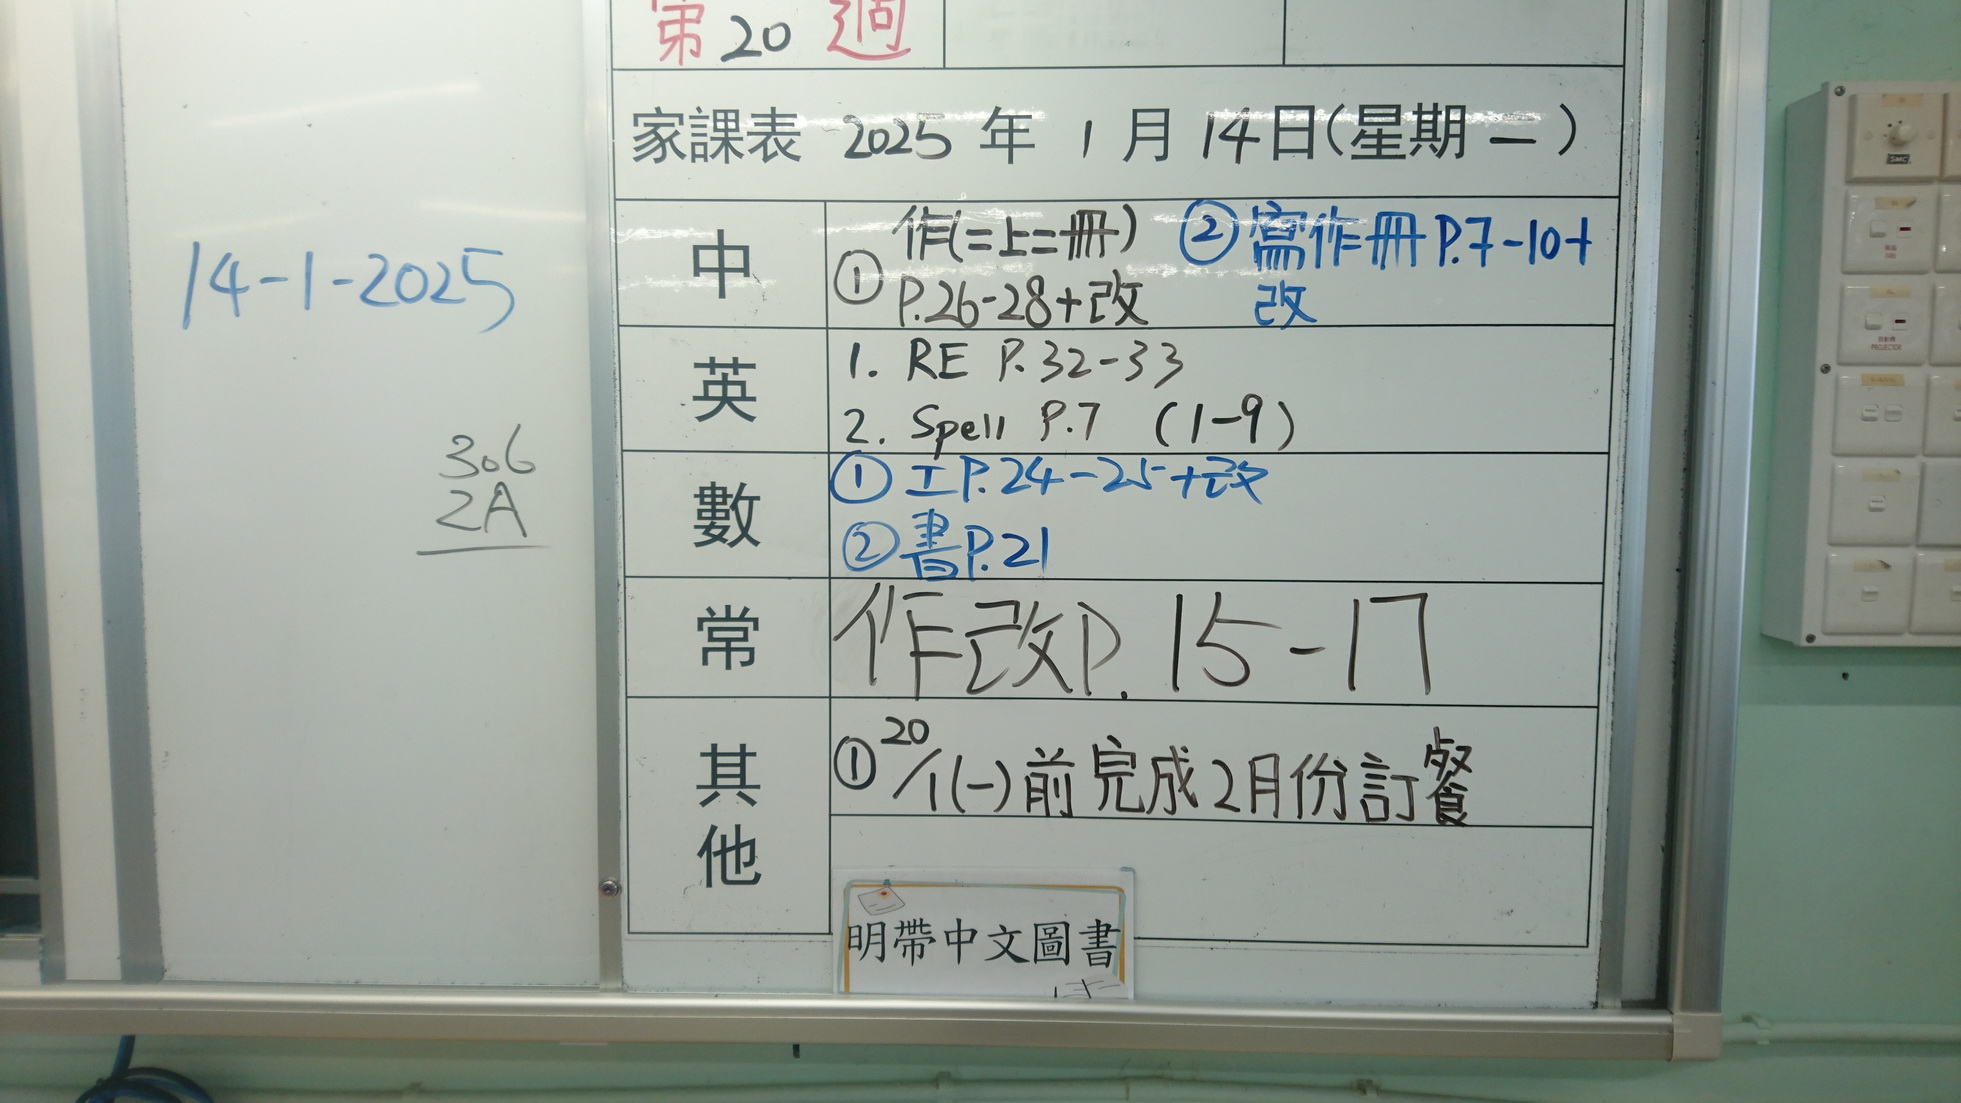 第20週
家課表 2025年1月14日(星期二)
14-1-2025
306
2A
中
① 作(二上二冊)
P.26-28+改
② 寫作冊P.7-10+
改
英
1. RE P.32-33
2. Spell P.7 (1-9)
數
① 工P.24-25+改
② 書P.21
常
作改P.15-17
其他
① 20/1(一)前完成2月份訂餐
明帶中文圖書